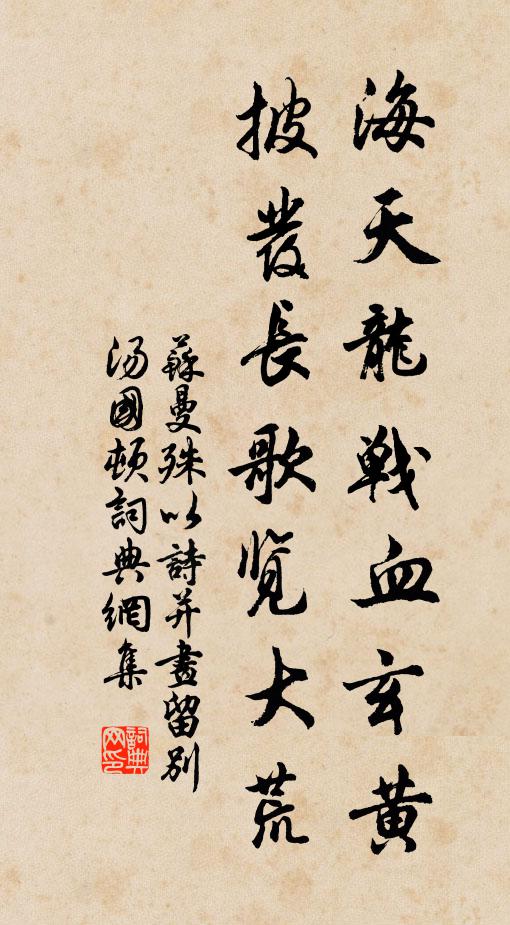 海天龍戰血玄黃
披發長歌覽大荒
蘇曼殊以詩并畫留別
湯國頓詞典網集
詞典網印